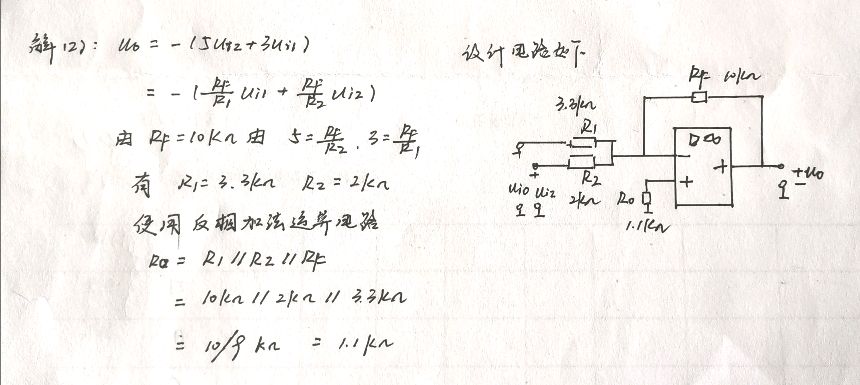 解(2): U₀ = -(5Ui2+3Ui1)
= -(RF/R1 Ui1 + RF/R2 Ui2)
由 RF=10KΩ 由 5=RF/R2 . 3=RF/R1
有 R1=3.3KΩ R2=2KΩ
使用反相加法运算电路
R1//R2//RF
= 10KΩ//2KΩ//3.3KΩ
= 10/9 KΩ = 1.1KΩ
设计电路如下
RF 10KΩ
3.3KΩ
R1
▷∞
-
+
+
+
U₀
-
+
R2
Ui2
2KΩ
R0
1.1KΩ